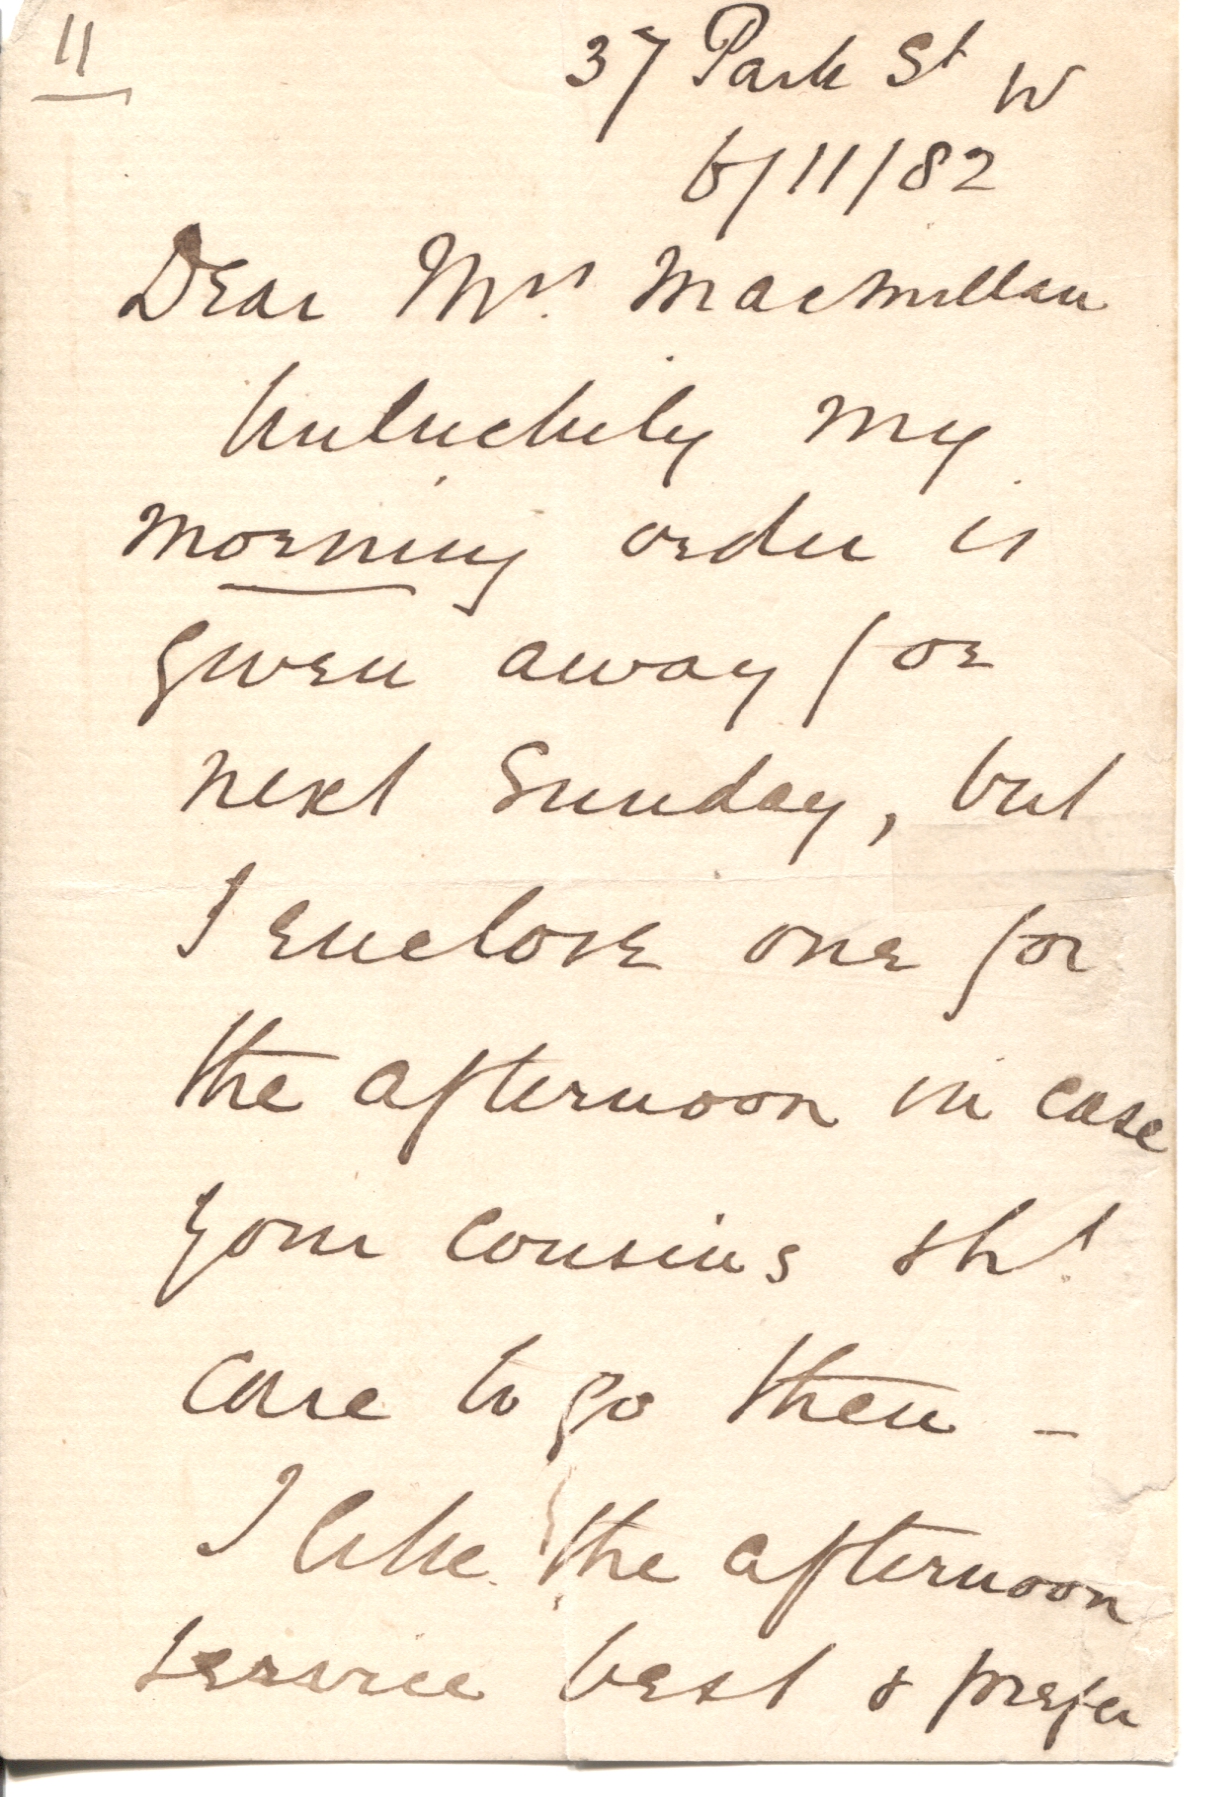 11
37 Park St W
6/11/82
Dear Mrs. Macmillan
Unluckily my
morning order is
given away for
next Sunday, but
I enclose one for
the afternoon in case
your cousins shd.
care to go then -
I like the afternoon
service best & prefer